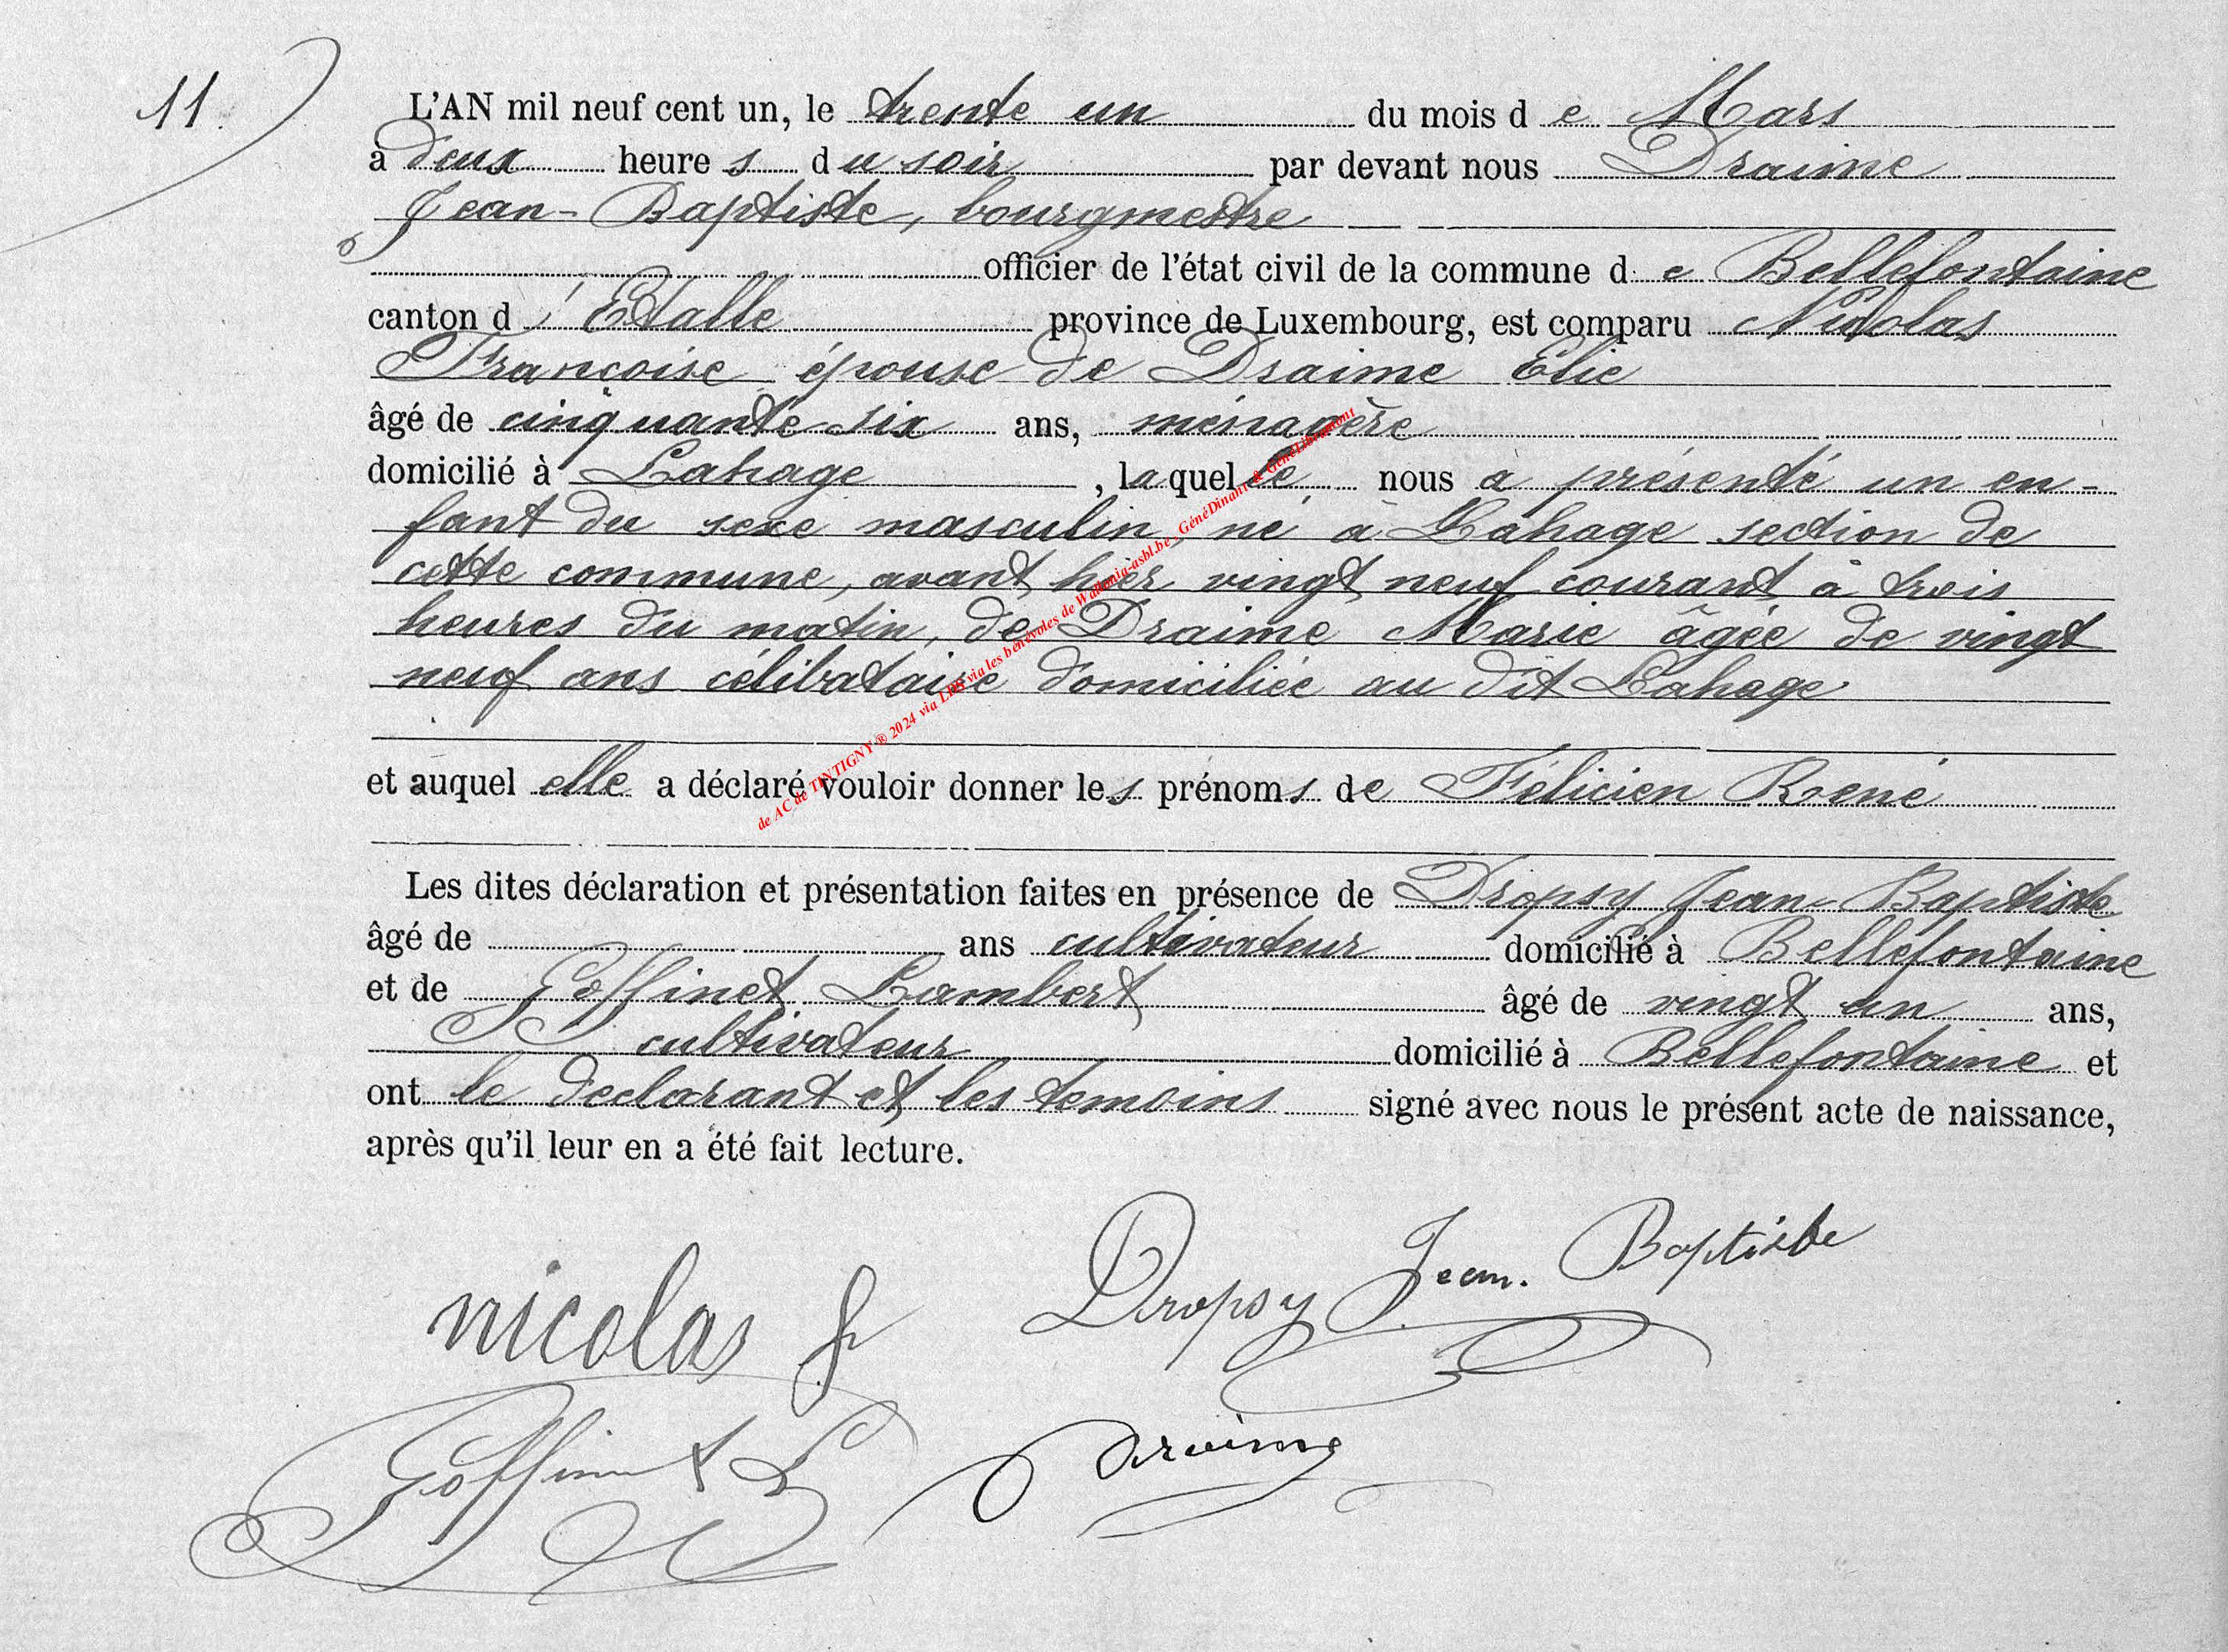 11.
L'AN mil neuf cent un, le trente un du mois de Mars
à deux heures du soir par devant nous Draime
Jean-Baptiste, bourgmestre
officier de l'état civil de la commune de Bellefontaine
canton d'Etalle province de Luxembourg, est comparu Nicolas
Françoise épouse de Draime Elie
âgé de cinquante six ans, ménagère
domicilié à Lahage, laquelle nous a présenté un en-
fant du sexe masculin né à Lahage section de
cette commune, avant hier vingt neuf courant à trois
heures du matin, de Draime Marie âgée de vingt
neuf ans célibataire domiciliée au dit Lahage
et auquel elle a déclaré vouloir donner les prénoms de Félicien René
Les dites déclaration et présentation faites en présence de Dropsy Jean-Baptiste
âgé de ans cultivateur domicilié à Bellefontaine
et de Goffinet Lambert âgé de vingt un ans,
cultivateur domicilié à Bellefontaine et
ont le declarant et les temoins signé avec nous le présent acte de naissance,
après qu'il leur en a été fait lecture.
de AC de TINTIGNY ® 2024 via LDS via les bénévoles de Wallonia-asbl.be - GénéDinant & GénéLibramont
nicolas f
Dropsy Jean. Baptiste
Goffinet L
Draime